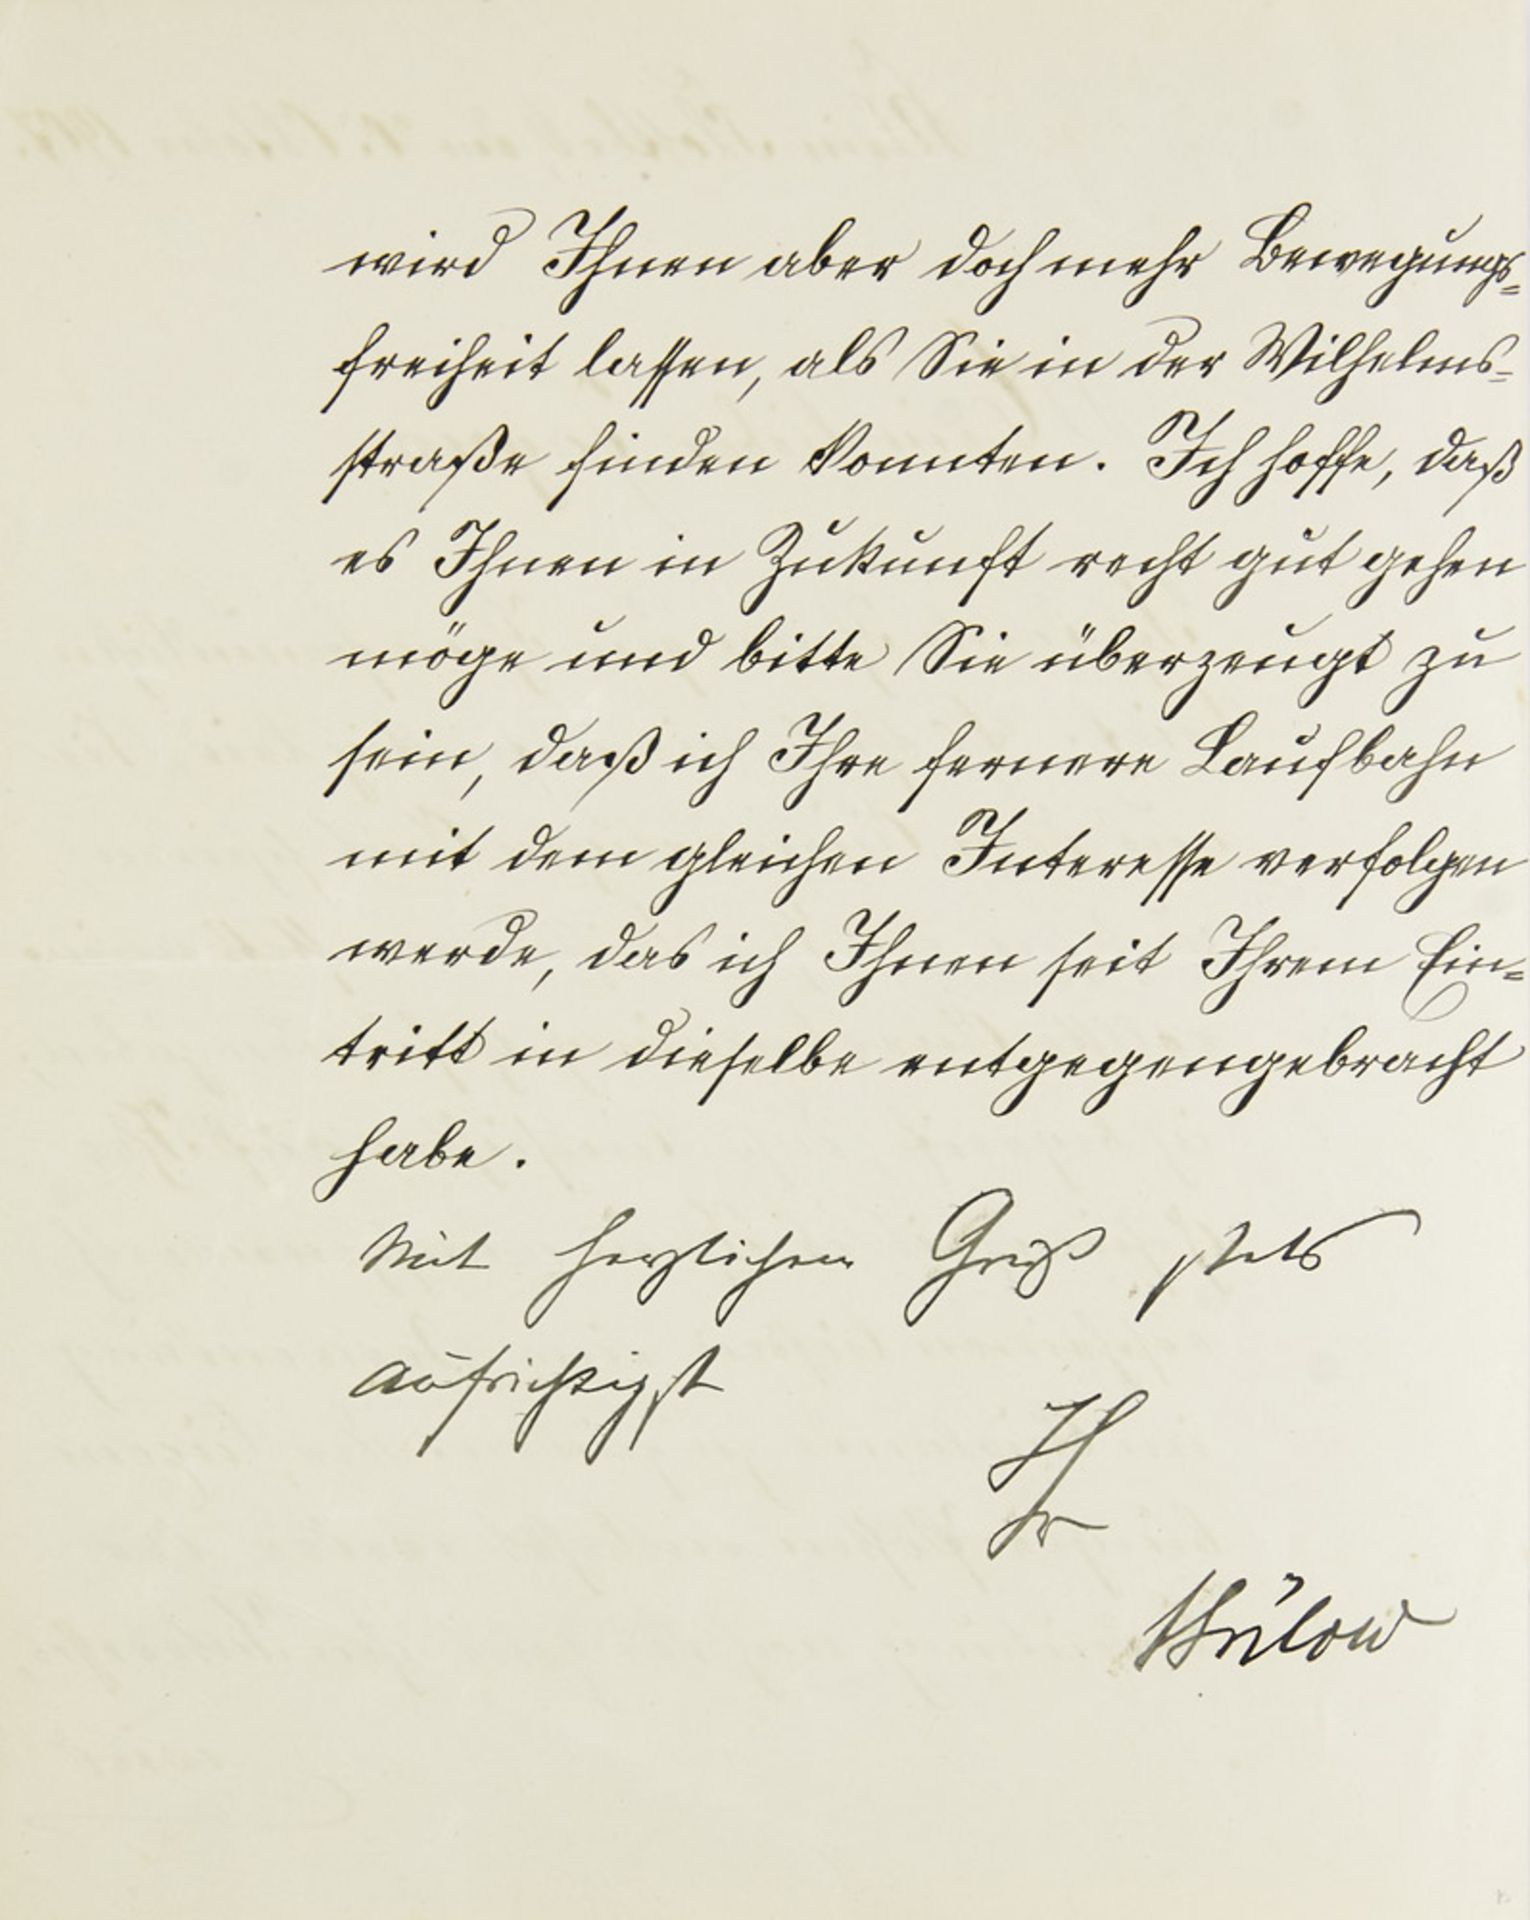 wird Ihnen aber doch mehr Bewegungs=
freiheit lassen, als Sie in der Wilhelms=
straße finden konnten. Ich hoffe, daß
es Ihnen in Zukunft recht gut gehen
möge und bitte Sie überzeugt zu
sein, daß ich Ihre fernere Laufbahn
mit dem gleichen Interesse verfolgen
werde, das ich Ihnen seit Ihrem Ein=
tritt in dieselbe entgegengebracht
habe.
Mit herzlichem Gruß stets
aufrichtigst
Ihr
Bülow